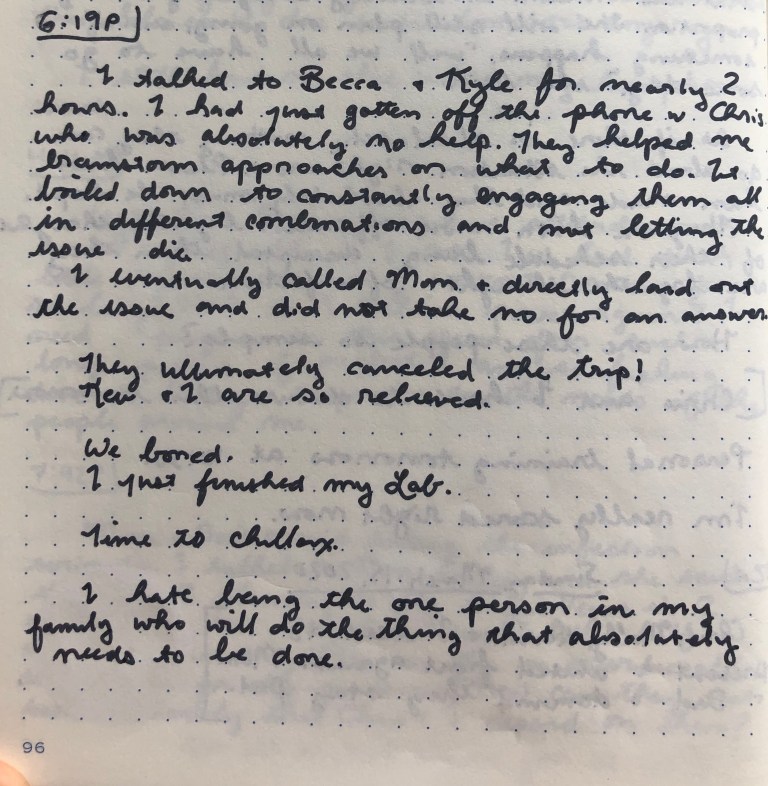 6:19P
I talked to Becca & Kyle for nearly 2
hours. I had just gotten off the phone w Chris
who was absolutely no help. They helped me
brainstorm approaches on what to do. It
boiled down to constantly engaging them all
in different combinations and not letting the
issue die.
I eventually called Mom & directly laid out
the issue and did not take no for an answer.
They ultimately canceled the trip!
Kew & I are so relieved.
We boned.
I just finished my Lab.
Time to chillax.
I hate being the one person in my
family who will do the thing that absolutely
needs to be done.
96